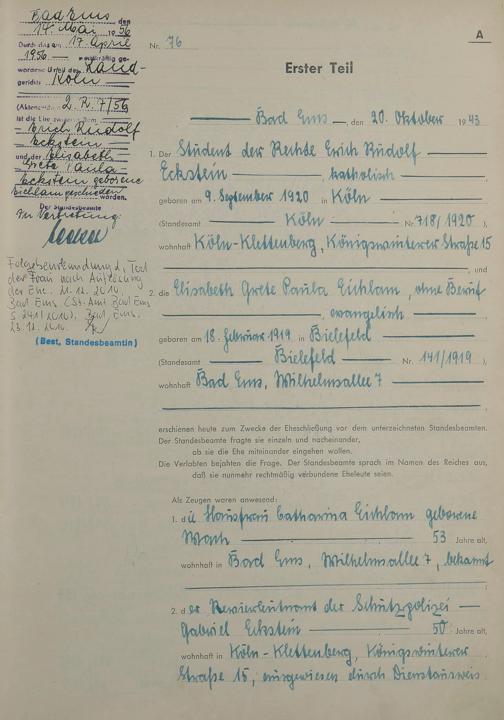 Bad Ems den
14. Mai 1956
Durch das am 17. April
1956 rechtskräftig ge-
wordene Urteil des Land-
gerichts Köln
(Aktenzeichen 2. R. 7/56
ist die Ehe zwischen dem
Erich Rudolf
Eckstein
und der Elisabeth
Grete Paula
Eckstein geborene
Eichlam geschieden
worden.
Der Standesbeamte
In Vertretung:
der Frau nach Auflösung
der Ehe. 21.12.2010
Bad Ems (St.-Amt Bad Ems
S 241/2010). Bad Ems.
23.12.2010.
(Best, Standesbeamtin)
A
Nr. 76
Erster Teil
Bad Ems, den 20. Oktober 1943
1. Der Student der Rechte Erich Rudolf
Eckstein katholisch
geboren am 9. September 1920 in Köln
(Standesamt Köln Nr. 718/1920),
wohnhaft Köln-Klettenberg, Königswinterer Straße 15
, und
2. die Elisabeth Grete Paula Eichlam, ohne Beruf
, evangelisch
geboren am 18. Februar 1919 in Bielefeld
(Standesamt Bielefeld Nr. 141/1919),
wohnhaft Bad Ems, Wilhelmsallee 7
erschienen heute zum Zwecke der Eheschließung vor dem unterzeichneten Standesbeamten.
Der Standesbeamte fragte sie einzeln und nacheinander,
ob sie die Ehe miteinander eingehen wollen.
Die Verlobten bejahten die Frage. Der Standesbeamte sprach im Namen des Reiches aus,
daß sie nunmehr rechtmäßig verbundene Eheleute seien.
Als Zeugen waren anwesend:
1. die Hausfrau Catharina Eichlam geborene
53 Jahre alt,
wohnhaft in Bad Ems, Wilhelmsallee 7, bekannt
2. der Revierleutnant der Schutzpolizei
Gabriel Eckstein 50 Jahre alt,
wohnhaft in Köln-Klettenberg, Königswinterer
Straße 15, ausgewiesen durch Dienstausweis